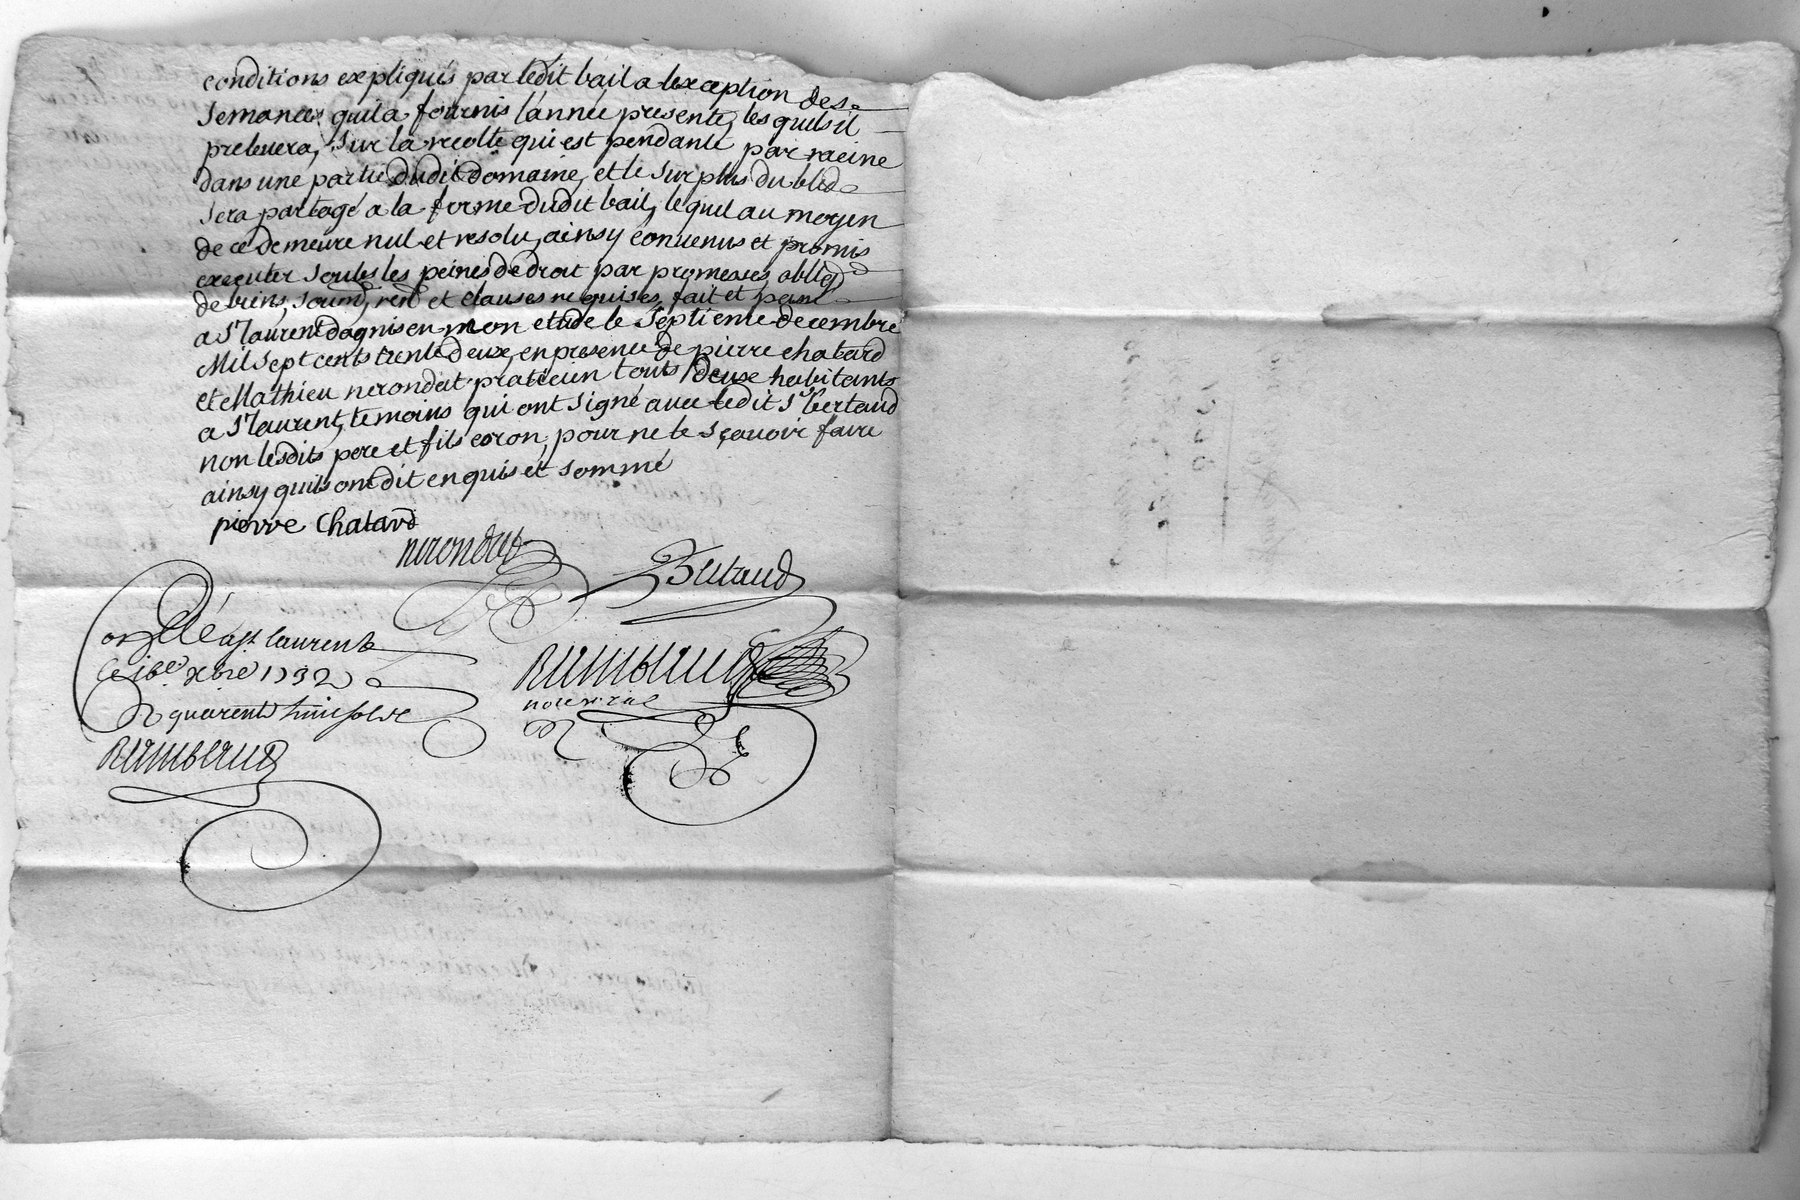 conditions expliqués par ledit bail a lexception des
semances quil a fournis lannée presente, les quels il
prelevera, sur la recolte qui est pendante par racine
dans une partie dudit domaine, et le surplus du bled
sera partagé a la forme dudit bail, lequel au moyen
de ce demeure nul et resolu, ainsy convenus et promis
executer soubs les peines de droit par promesses oblig
de biens, soum, ren et clauses requises, fait et passé
a St laurent dagnis en mon etude le septieme decembre
Mil sept cents trente deux, en presence de pierre chatard
et Mathieu nerondat praticien touts deux habitants
a St laurent, temoins qui ont signé avec ledit Sr bertaud
non lesdits pere et fils coron, pour ne le sçavoir faire
ainsy quils ont dit enquis et sommé
pierre Chatard
nerondat
Bertaud
Con lé a St laurent
le 16e xbre 1732
R quarente huit sols
Rambaud
not royal
Rambaud